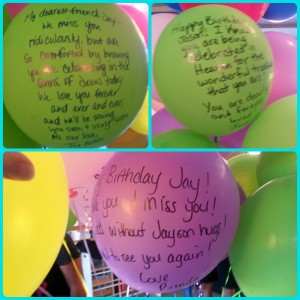 My dearest friend Jay-
We miss you
ridiculously, but are
so comforted by knowing
you're celebrating in the
arms of Jesus today.
We love you forever
and ever and ever,
and we'll be seeing
you soon
All our love,
Happy Birthday
Jason! I know
you are being
celebrated in
Heaven for the
wonderful
that you are!
You are dear
and
Birthday Jay!
you! I miss you!
without Jayson hugs!
to see you again!
Love